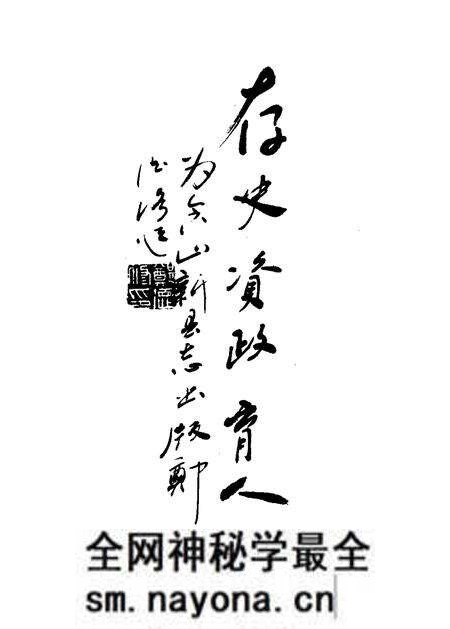 存史資政育人
为含山新县志出版鄭
德修题
全网神秘学最全
sm.nayona.cn